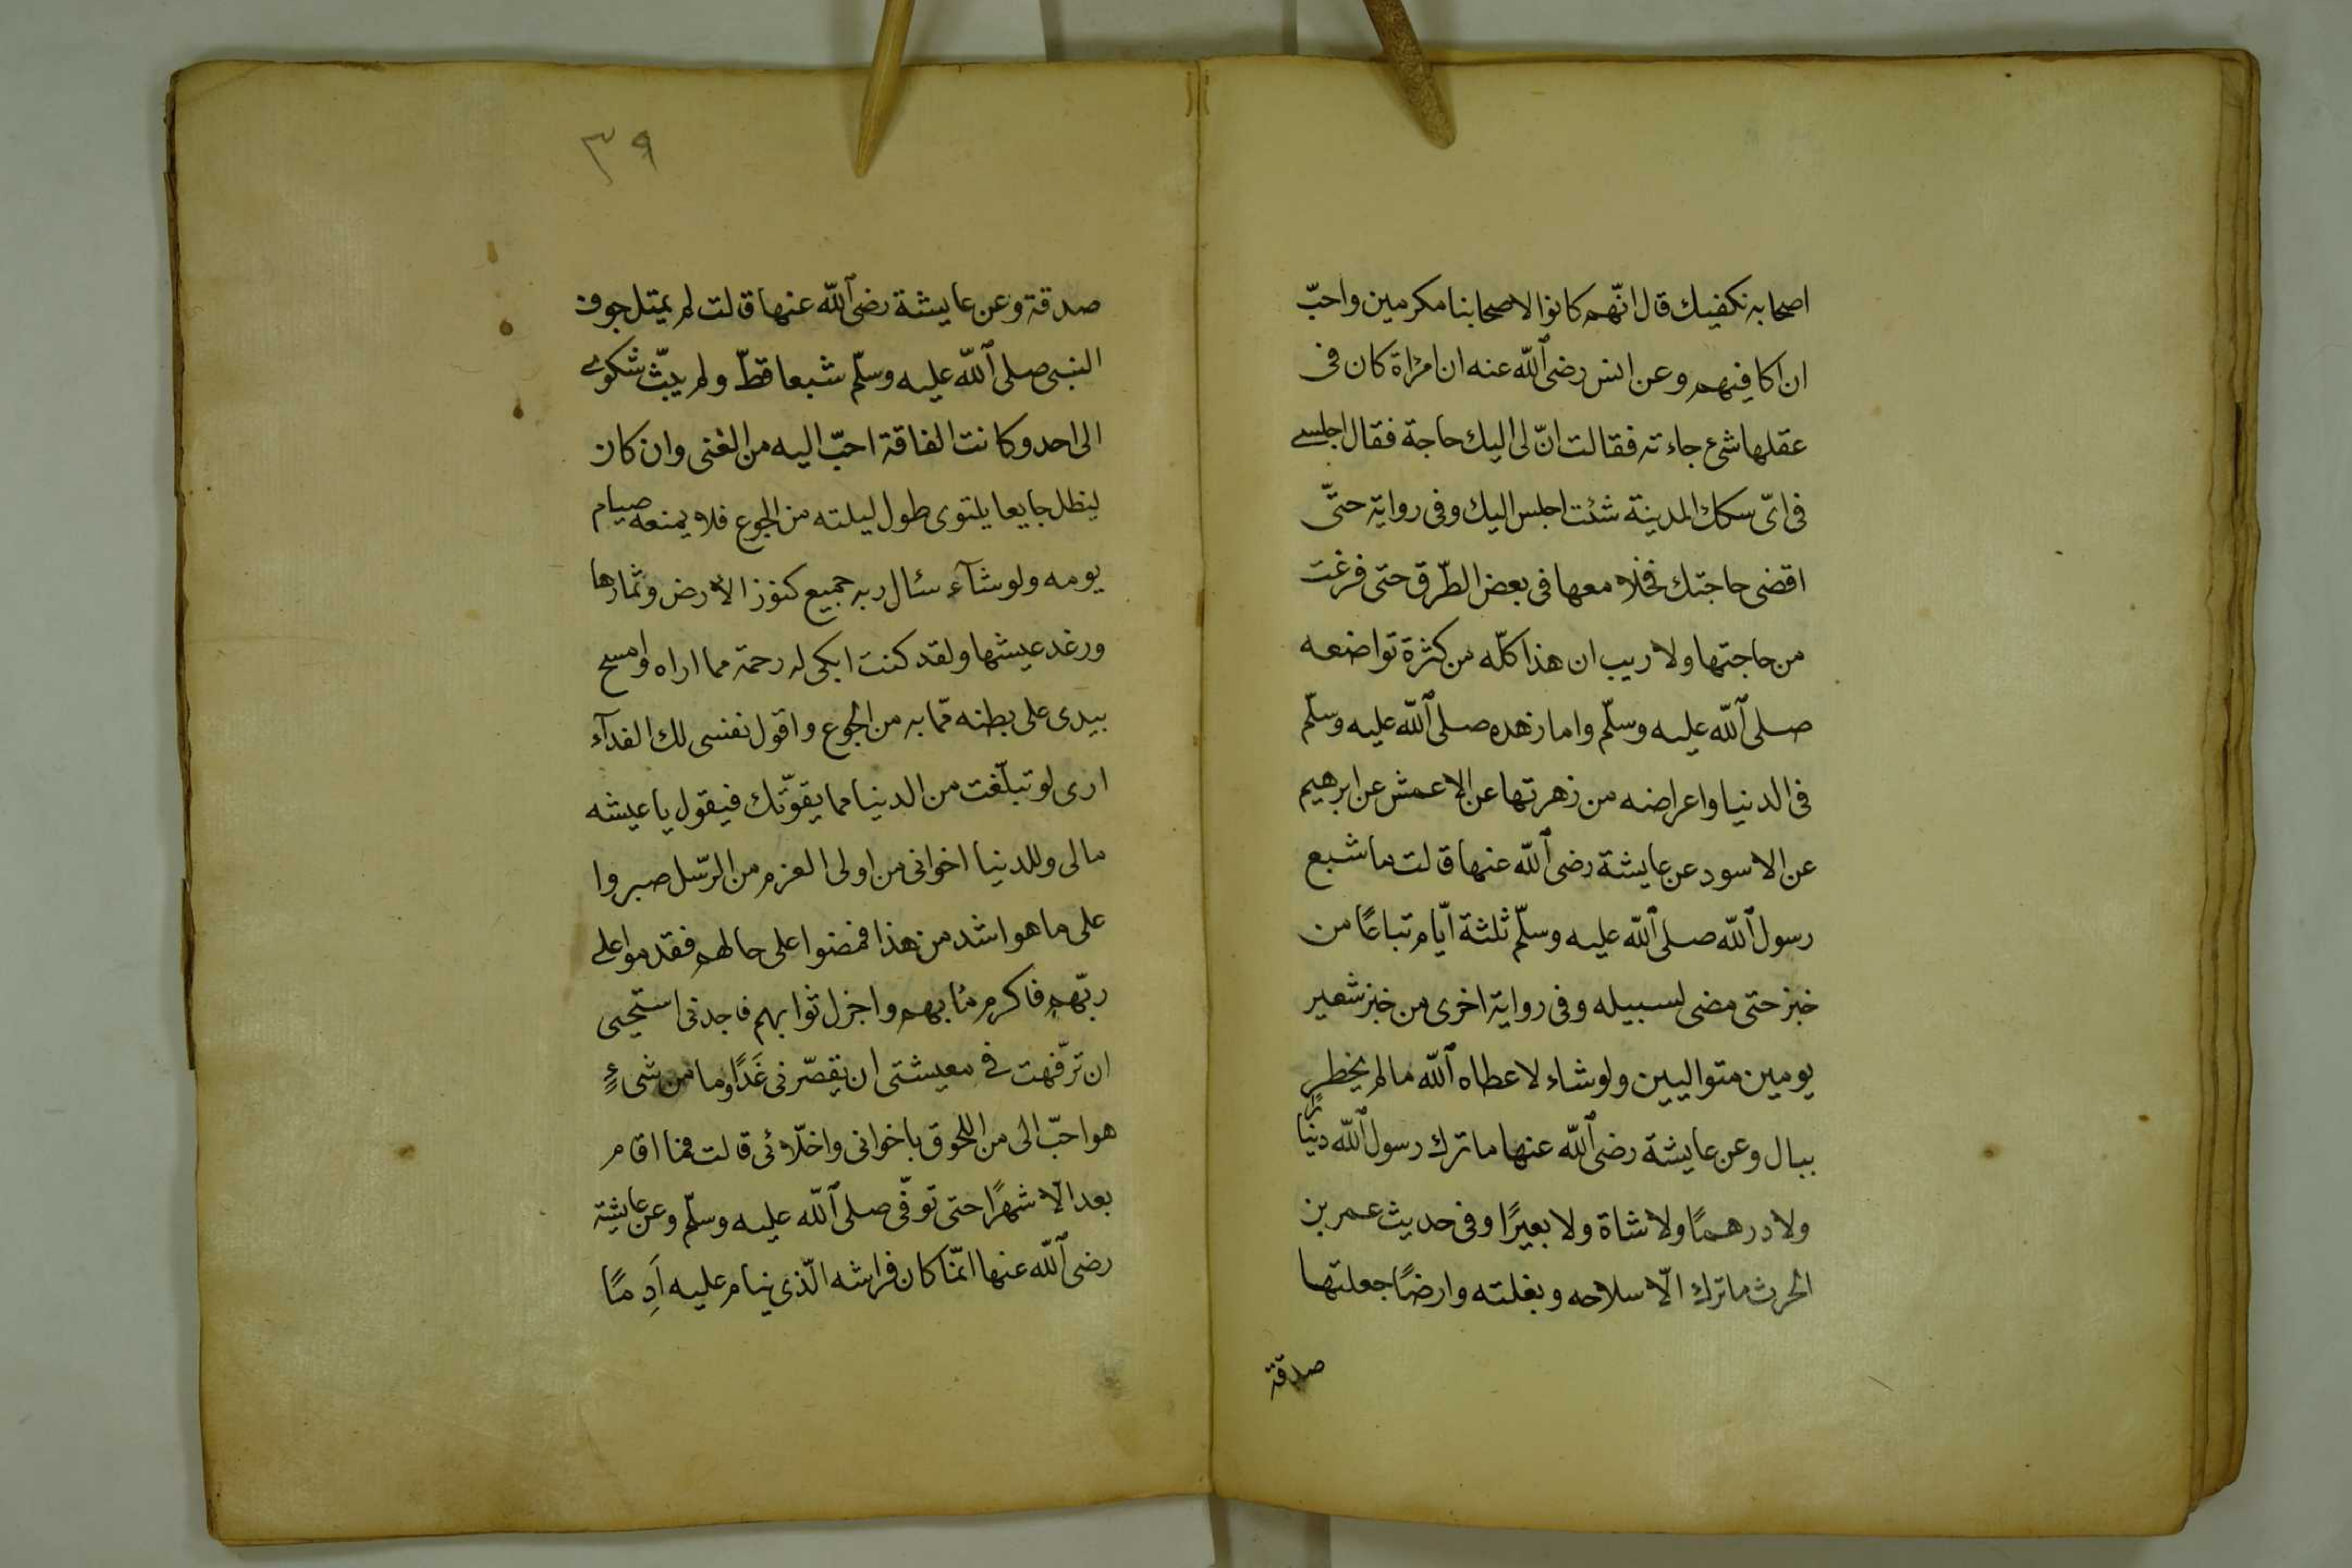 اصحابه نكفيك قال انّهم كانوا لاصحابنا مكرمين واحبّ
ان اكافيهم وعن انس رضى الله عنه ان امراة كان فى
عقلها شئ جاءته فقالت انّ لى اليك حاجة فقال اجلسى
فى اىّ سكك المدينة شئت اجلس اليك وفى رواية حتّى
اقضى حاجتك فخلا معها فى بعض الطّرق حتى فرغت
من حاجتها ولا ريب ان هذا كلّه من كثرة تواضعه
صلى الله عليه وسلّم واما زهده صلى الله عليه وسلّم
فى الدنيا واعراضه من زهرتها عن الاعمش عن ابرهيم
عن الاسود عن عايشة رضى الله عنها قالت ما شبع
رسول الله صلى الله عليه وسلّم ثلثة ايّام تباعًا من
خبز حتى مضى لسبيله وفى رواية اخرى من خبز شعير
يومين متواليين ولو شاء لاعطاه الله ما لم يخطر
ببال وعن عايشة رضى الله عنها ما ترك رسول الله دنيارًا
ولا درهمًا ولا شاة ولا بعيرًا وفى حديث عمر بن
الحرث ما ترك الّا سلاحه وبغلته وارضًا جعلتها
صدقة
٣٩
صدقة وعن عايشة رضى الله عنها قالت لم يمتل جوف
النبى صلى الله عليه وسلّم شبعا قطّ ولم يبثّ شكوى
الى احد وكانت الفاقة احبّ اليه من الغنى وان كان
لينظل جايعا يلتوى طول ليلته من الجوع فلا يمنعه صيام
يومه ولو شآء سئال ربه جميع كنوز الارض وثمارها
ورغد عيشها ولقد كنت ابكى له رحمة مما اراه وامسح
بيدى على بطنه ممّا به من الجوع واقول نفسى لك الفدآء
ارى لو تبلّغت من الدنيا مما يقوّتك فيقول يا عيشه
مالى وللدنيا اخوانى من اولى العزم من الرّسل صبروا
على ما هو اشد من هذا فمضوا على حالهم فقدموا على
ربّهم فاكرم مٰابهم واجزل ثوابهم فاجدنى استحيى
ان ترّفهت فى معيشتى ان يقصّر نى غَدًا وما من شىءٍ
هو احبّ الى من اللحوق باخوانى واخلّائى قالت فما اقام
بعد الّا شهرًا حتى توفّى صلى الله عليه وسلّم وعن عايشة
رضى الله عنها انمّا كان فراشه الّذى ينام عليه اَدِمًا